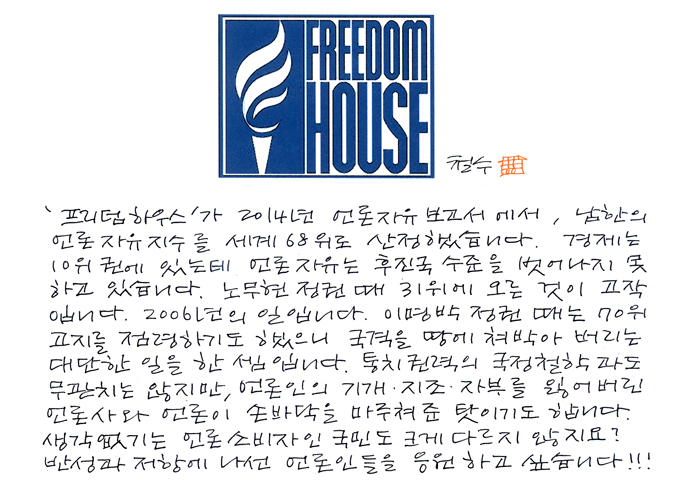 FREEDOM
HOUSE
철수
'프리덤하우스'가 2014년 언론자유보고서에서, 남한의
언론자유지수를 세계 68위로 산정했습니다. 경제는
10위권에 있는데 언론자유는 후진국 수준을 벗어나지 못
하고 있습니다. 노무현 정권 때 31위에 오른 것이 고작
입니다. 2006년의 일입니다. 이명박 정권 때는 70위
고지를 점령하기도 했으니 국격을 땅에 쳐박아 버리는
대단한 일을 한 셈입니다. 통치권력의 국정철학과도
무관치는 않지만, 언론인의 기개·지조·자부를 잃어버린
언론사와 언론이 손바닥을 마주쳐준 탓이기도 합니다.
생각없기는 언론소비자인 국민도 크게 다르지 않지요?
반성과 저항에 나선 언론인들을 응원하고 싶습니다!!!